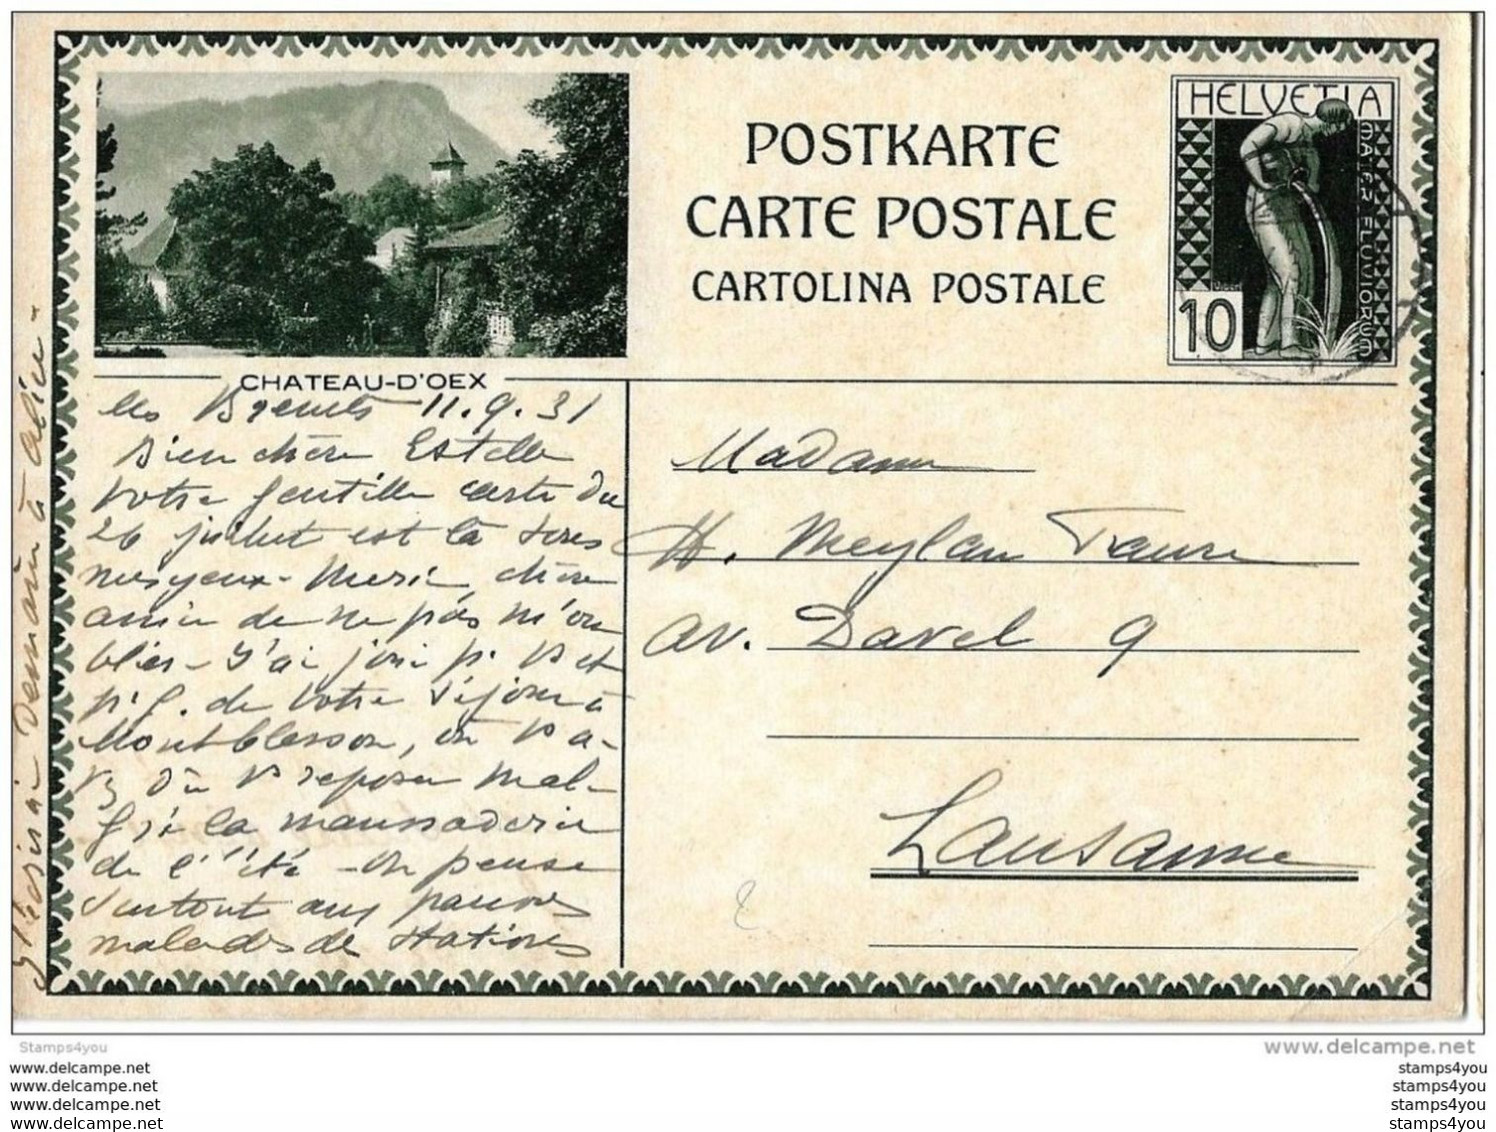 POSTKARTE
CARTE POSTALE
CARTOLINA POSTALE
HELVETIA
MATER FLUVIORUM
10
CHATEAU-D'OEX
les 11.9.31
Bien chère Estelle
Votre gentille carte du
26 juillet est là sous
mes yeux - Merci, chère
amie de ne pas m'ou
blier - J'ai joui p. V et
p. G. de votre séjour à
Montblesson, où V a-
vz dû V reposer mal-
gré la maussaderie
de l'été - On pense
surtout aux pauvres
malades de stations
Madame
H. Meylan Faure
av. Davel 9
Lausanne
à Alice -
Stamps4you
www.delcampe.net
www.delcampe.net
www.delcampe.net
www.delcampe.net
www.delcampe.net
stamps4you
stamps4you
stamps4you
stamps4you